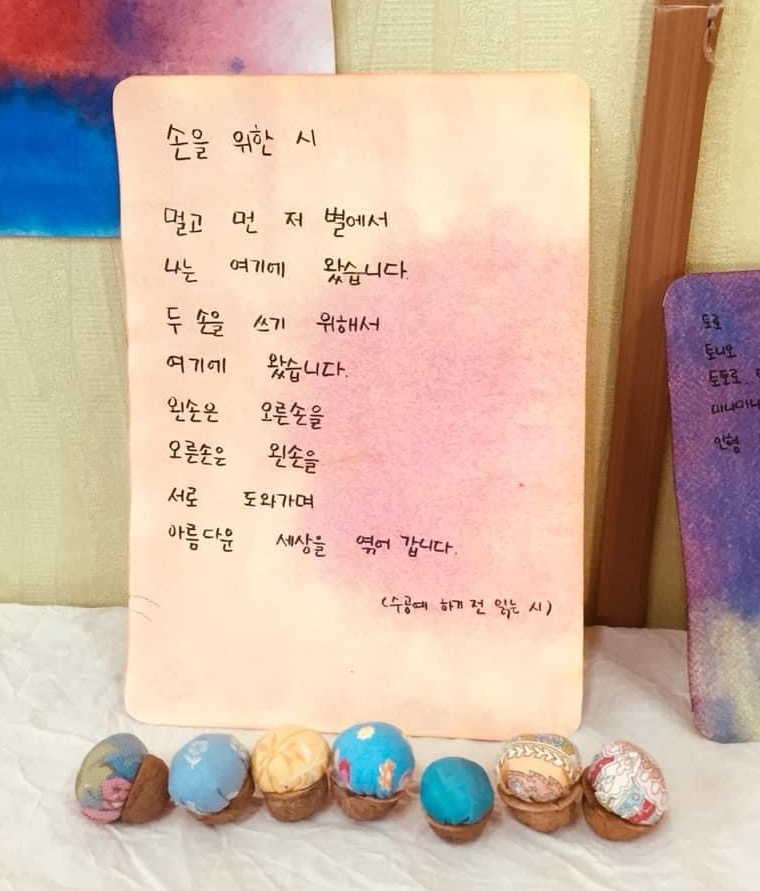 손을 위한 시
멀고 먼 저 별에서
나는 여기에 왔습니다.
두 손을 쓰기 위해서
여기에 왔습니다.
왼손은 오른손을
오른손은 왼손을
서로 도와가며
아름다운 세상을 엮어 갑니다.
(수공예 하기 전 읽는 시)
토로
토니오
토토로.
미나미나
인형